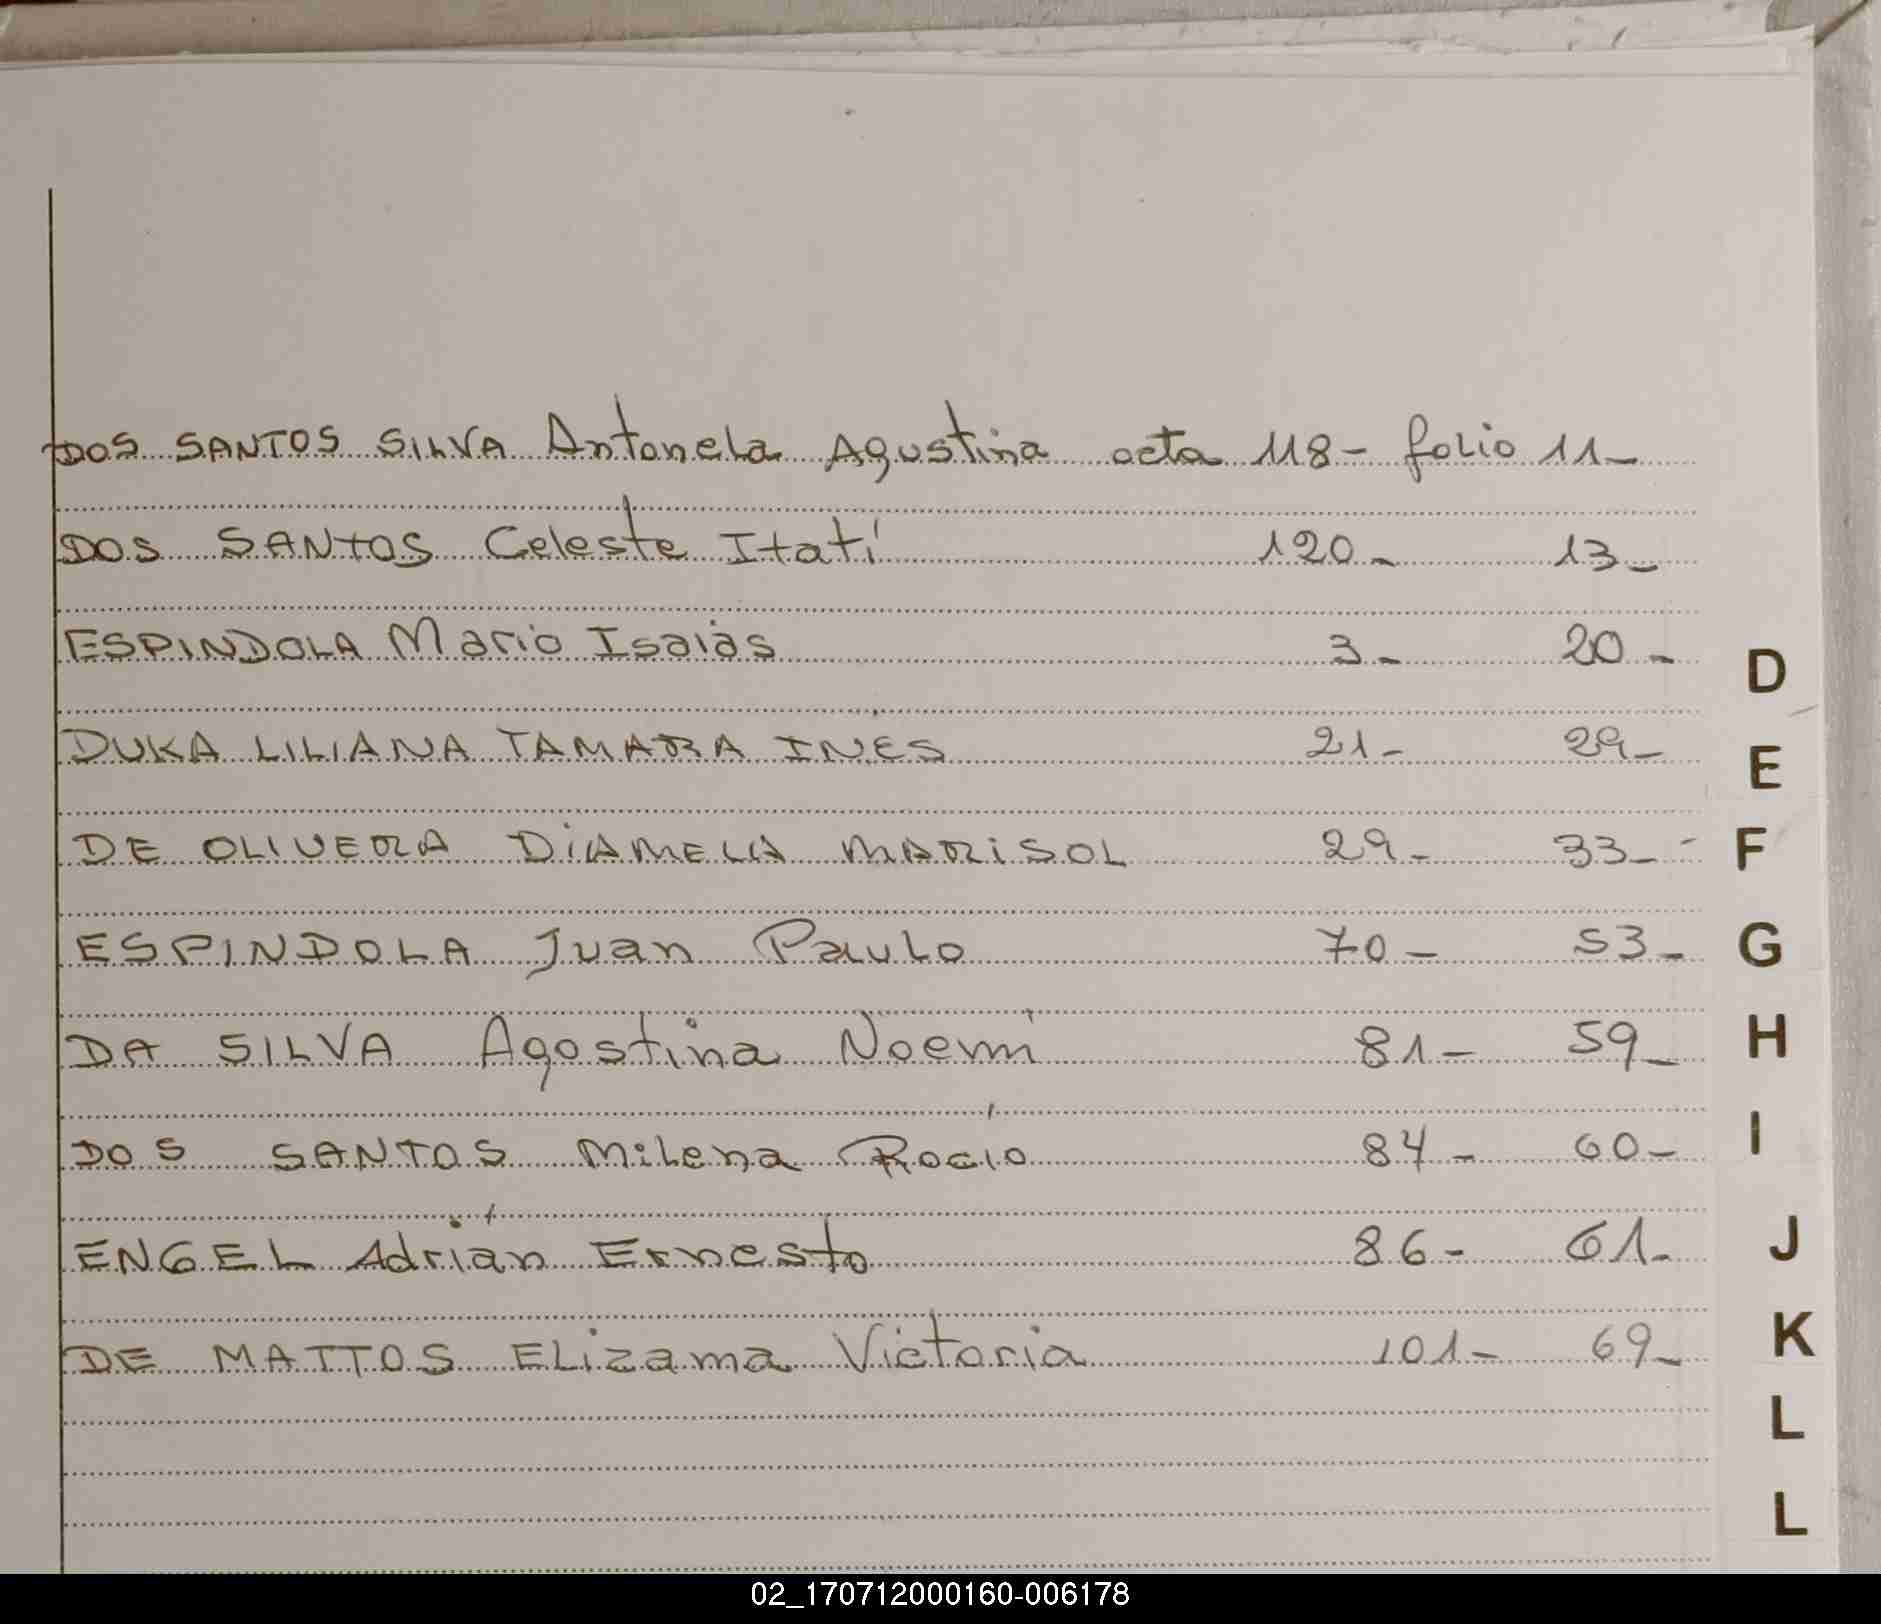 DOS SANTOS SILVA Antonela Agustina acta 118- folio 11-
DOS SANTOS Celeste Itatí 120- 13-
ESPINDOLA Mario Isaias 3- 20-
DUKA LILIANA TAMARA INES 21- 29-
DE OLIVERA DiAMELA MARiSOL 29- 33-
ESPINDOLA Juan Paulo 70- 53-
DA SILVA Agostina Noemí 81- 59-
DOS SANTOS Milena Rocío 84- 60-
ENGEL Adrián Ernesto 86- 61-
DE MATTOS Elizama Victoria 101- 69-
D
E
F
G
H
I
J
K
L
L
02_170712000160-006178